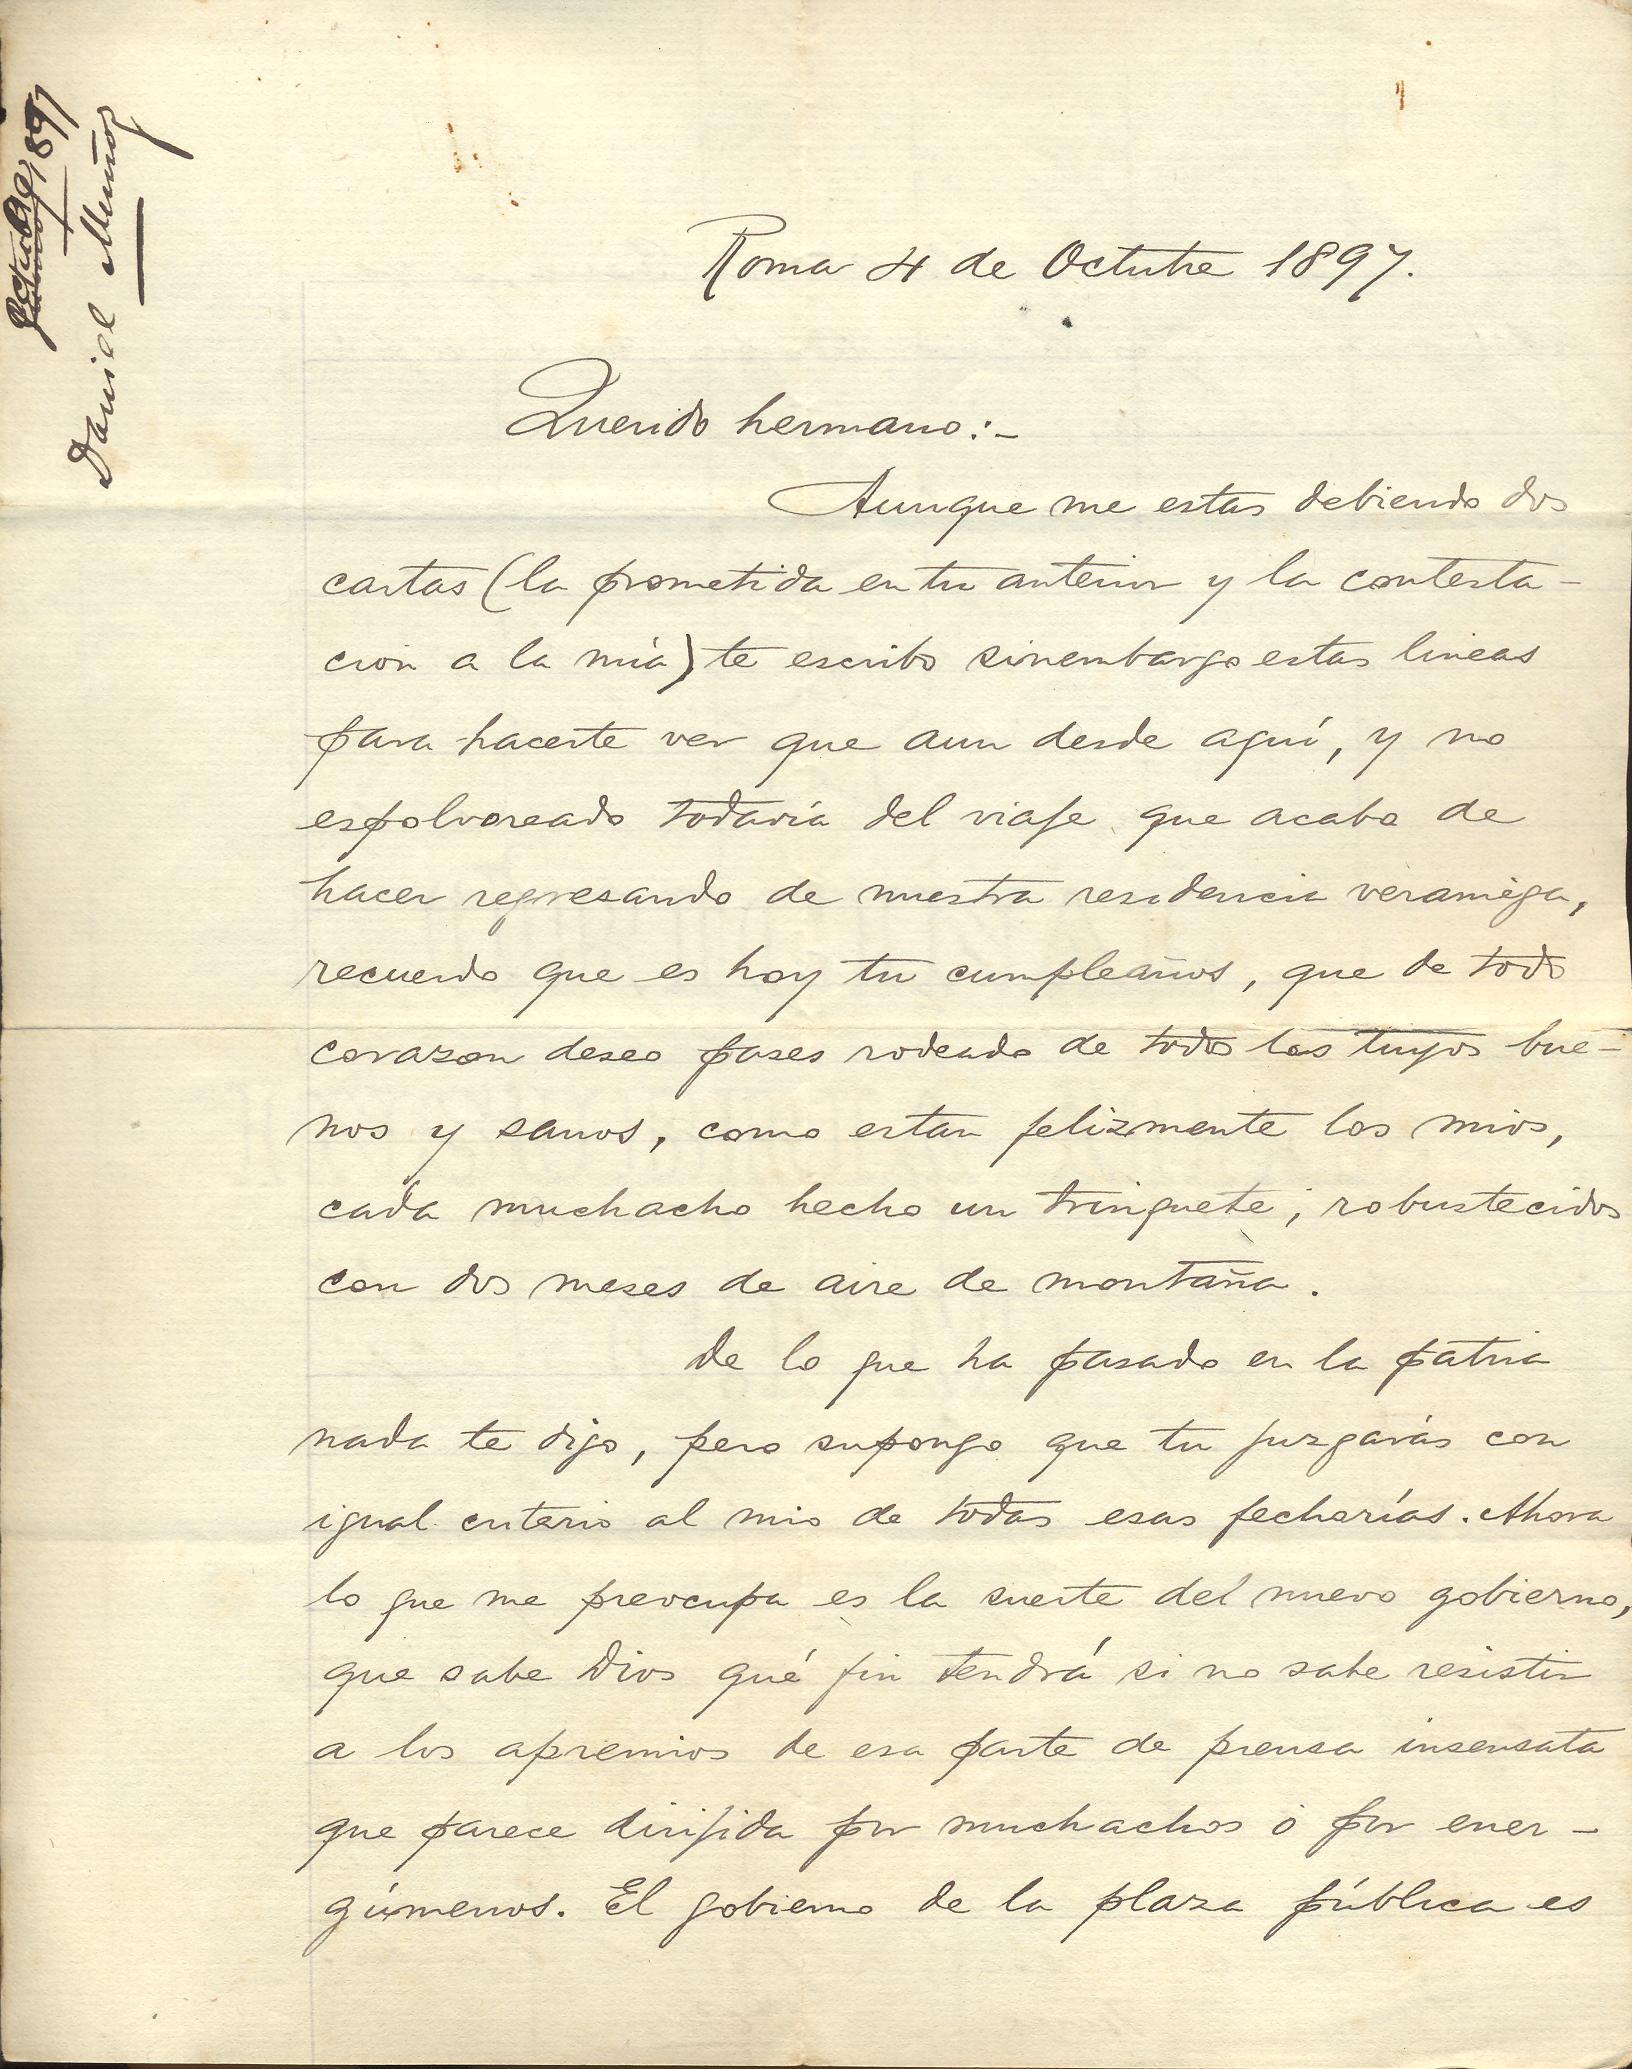 Octubre 1897
Daniel Muñoz
Roma 4 de Octubre 1897.
Querido hermano:-
Aunque me estas debiendo dos
cartas (la prometida en tu anterior y la contesta-
cion a la mía) te escribo sinembargo estas lineas
para hacerte ver que aun desde aquí, y no
espolvoreado todavía del viaje que acabo de
hacer regresando de nuestra residencia veraniega,
recuerdo que es hoy tu cumpleaños, que de todo
corazon deseo pases rodeado de todos los tuyos bue-
nos y sanos, como estan felizmente los mios,
cada muchacho hecho un trinquete, robustecidos
con dos meses de aire de montaña.
De lo que ha pasado en la patria
nada te digo, pero supongo que tu juzgarás con
igual criterio al mio de todas esas fechorías. Ahora
lo que me preocupa es la suerte del nuevo gobierno,
que sabe Dios qué fin tendrá si no sabe resistir
a los apremios de esa parte de prensa insensata
que parece dirijida por muchachos ó por ener-
gúmenos. El gobierno de la plaza pública es